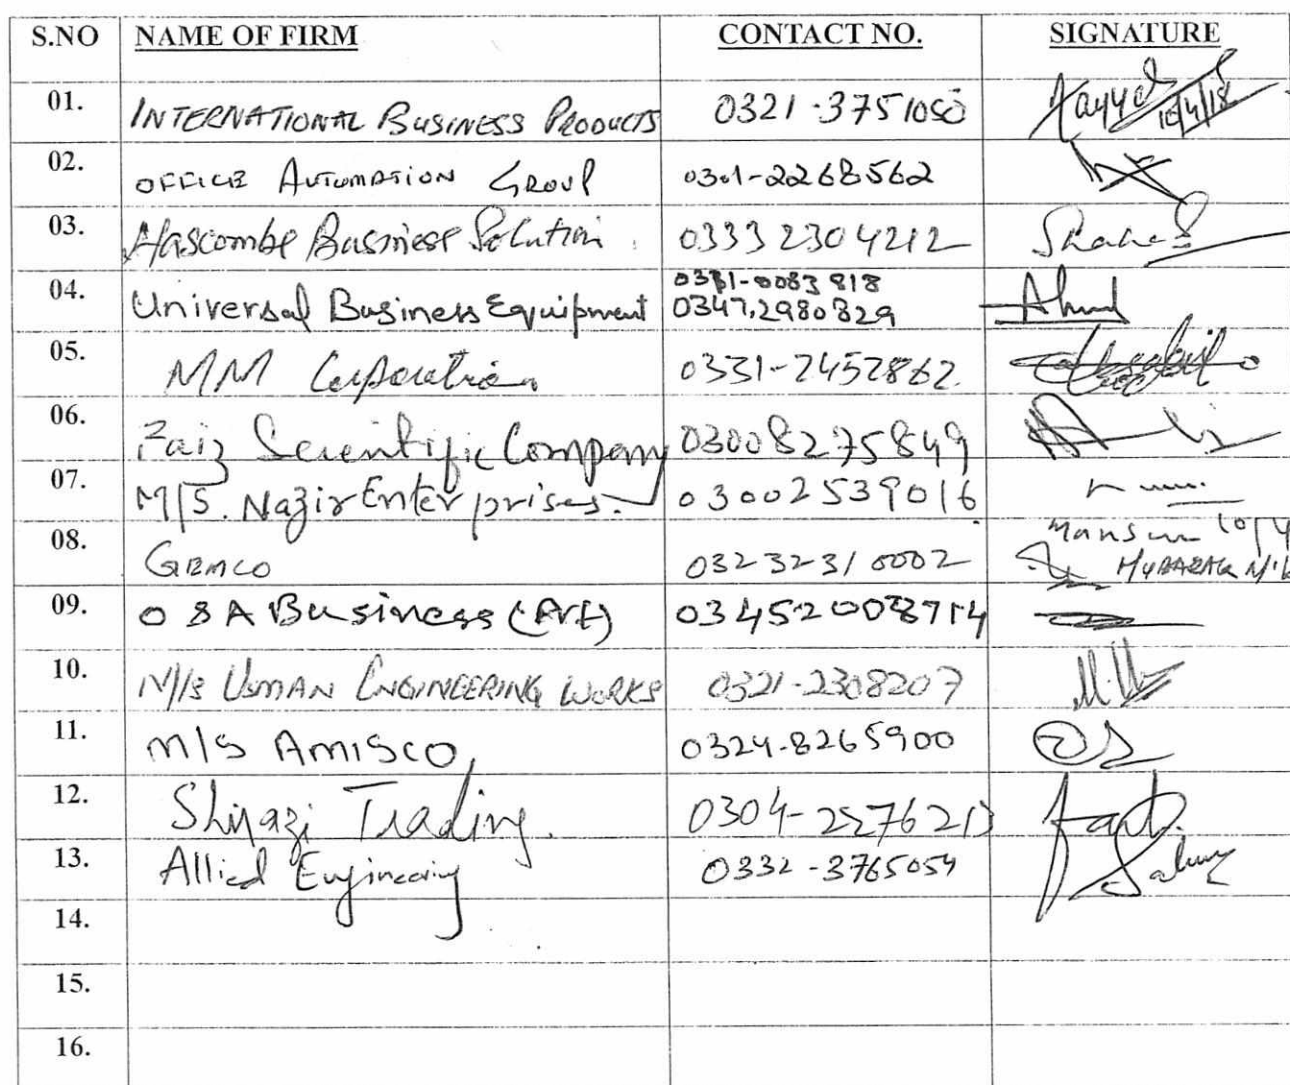 S.NO NAME OF FIRM CONTACT NO. SIGNATURE
01. INTERNATIONAL BUSINESS PRODUCTS 0321-3751050 10/4/18
02. OFFICE AUTOMATION GROUP 0301-2268562
03. Hascombe Business Solution. 03332304212
04. Universal Business Equipment 0347.2980829
05. MM Corporation 0331-2452862
06. Faiz Scientific Company 03008275849
07. M/S. Nazir Enterprises. 03002539016
08. GEMCO 03232310002
09. O & A Business (Pvt)
10. M/S USMAN ENGINEERING WORKS 0321-2308207
11. M/S AMISCO 0324-8265900
12. Shirazi Trading.
13. Allied Engineering 0332-3765054
14.
15.
16.